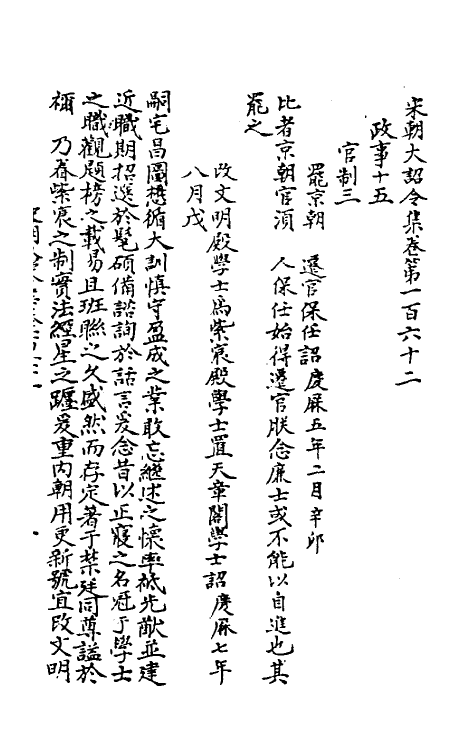 宋朝大詔令集卷第一百六十二
政事十五
官制三
罷京朝　遷官保任詔慶厤五年二月辛卯
比者京朝官須　人保任始得遷官朕念廉士或不能以自進也其
罷之
改文明殿學士爲紫宸殿學士置天章閣學士詔慶厤七年
八月戊
嗣宅昌圖懋循大訓慎守盈成之業敢忘繼述之懷率祗先猷並建
近職期招選於髦碩備諮詢於話言爰念昔以正寢之名冠于學士
之職觀題榜之載易且班聯之久盛然而存定著于禁廷同尊謚於
禰　乃眷紫宸之制實法經星之躔爰重内朝用更新號宜改文明